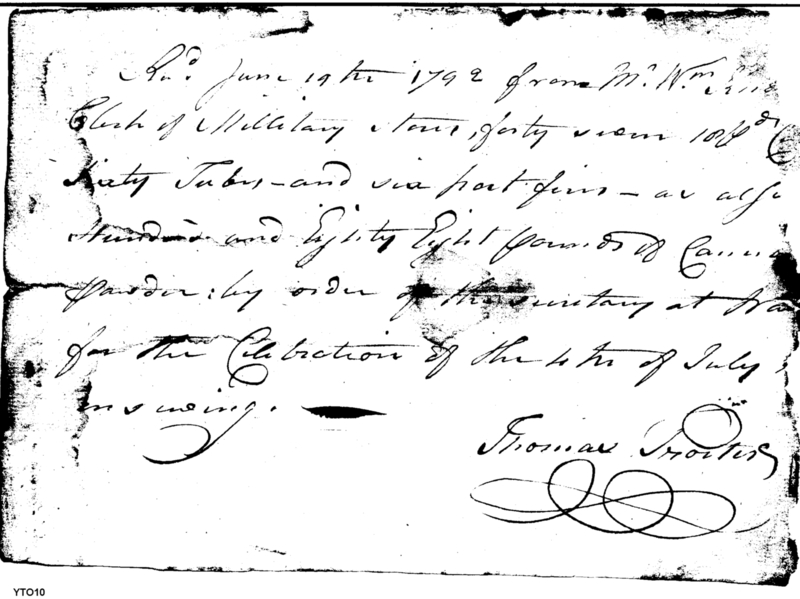 Recd. June 19th 1792 from Mr. Wm.
Clerk of Millitary Stores, forty seven
Sixty Tubes - and six port fires - as also
Hundred and Eighty Eight pounds of
Powder: by order of the Secretary at
for the Celibration of the 4th of July
insueing.
Thomas
YTO10